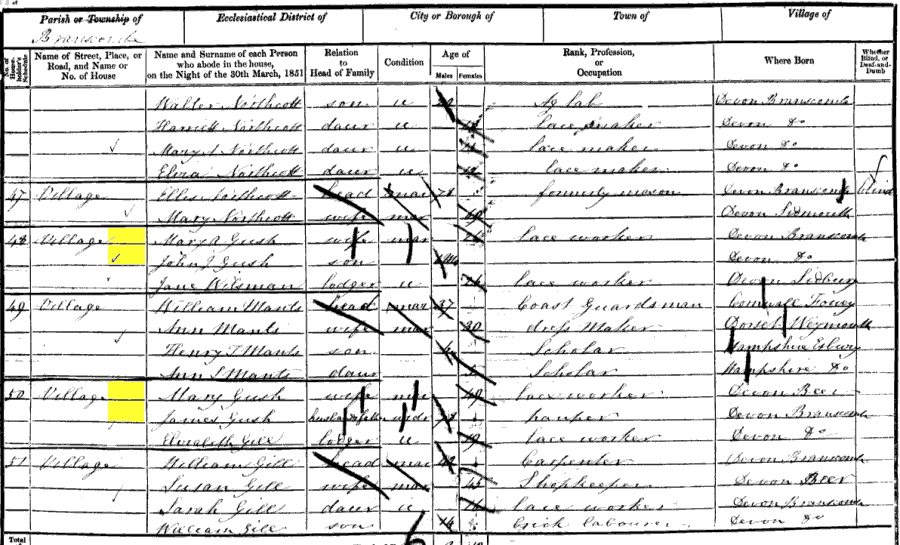 Parish or Township of Ecclesiastical District of City or Borough of Town of Village of
Branscombe
No. of Householder's Schedule Name of Street, Place, or Road, and Name or No. of House Name and Surname of each Person who abode in the house, on the Night of the 30th March, 1851 Relation to Head of Family Condition Age of Males Females Rank, Profession, or Occupation Where Born Whether Blind, or Deaf-and-Dumb
Walter Northcott son u Ag lab Devon Branscomb
Harriett Northcott daur u lace maker Devon Do
Mary A Northcott daur u lace maker Devon Do
Elvira Northcott daur u lace maker Devon Do
47 Village Ellis Northcott head mar formerly mason Devon Branscomb Blind
Mary Northcott wife mar Devon Sidmouth
48 Village Mary A Gush wife mar lace worker Devon Branscomb
John J Gush son Devon Do
Jane Wilsman lodger u lace worker Devon Sidbury
49 Village William Mants head mar 37 Coast Guardsman Cornwall Fowey
Ann Mants wife mar 30 dress Maker Dorset Weymouth
Henry T Mants son Scholar Hampshire Esbury
Ann S Mants daur Scholar Hampshire Do
50 Village Mary Gush wife lace worker Devon Beer
James Gush husbds father widr pauper Devon Branscomb
Elizabeth Gill lodger u lace worker Devon Do
51 Village William Gill head mar Carpenter Devon Branscomb
Susan Gill wife mar Shopkeeper Devon Beer
Sarah Gill daur u lace worker Devon Branscomb
William Gill son 14 Labourer Devon Do
Total